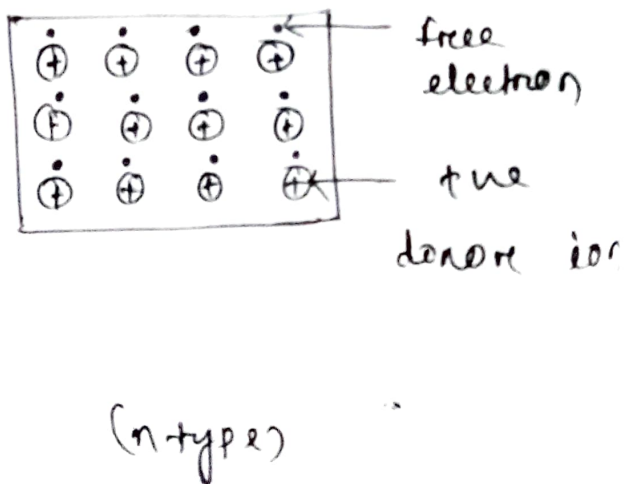 free
electron
+ve
donore ion
(n type)